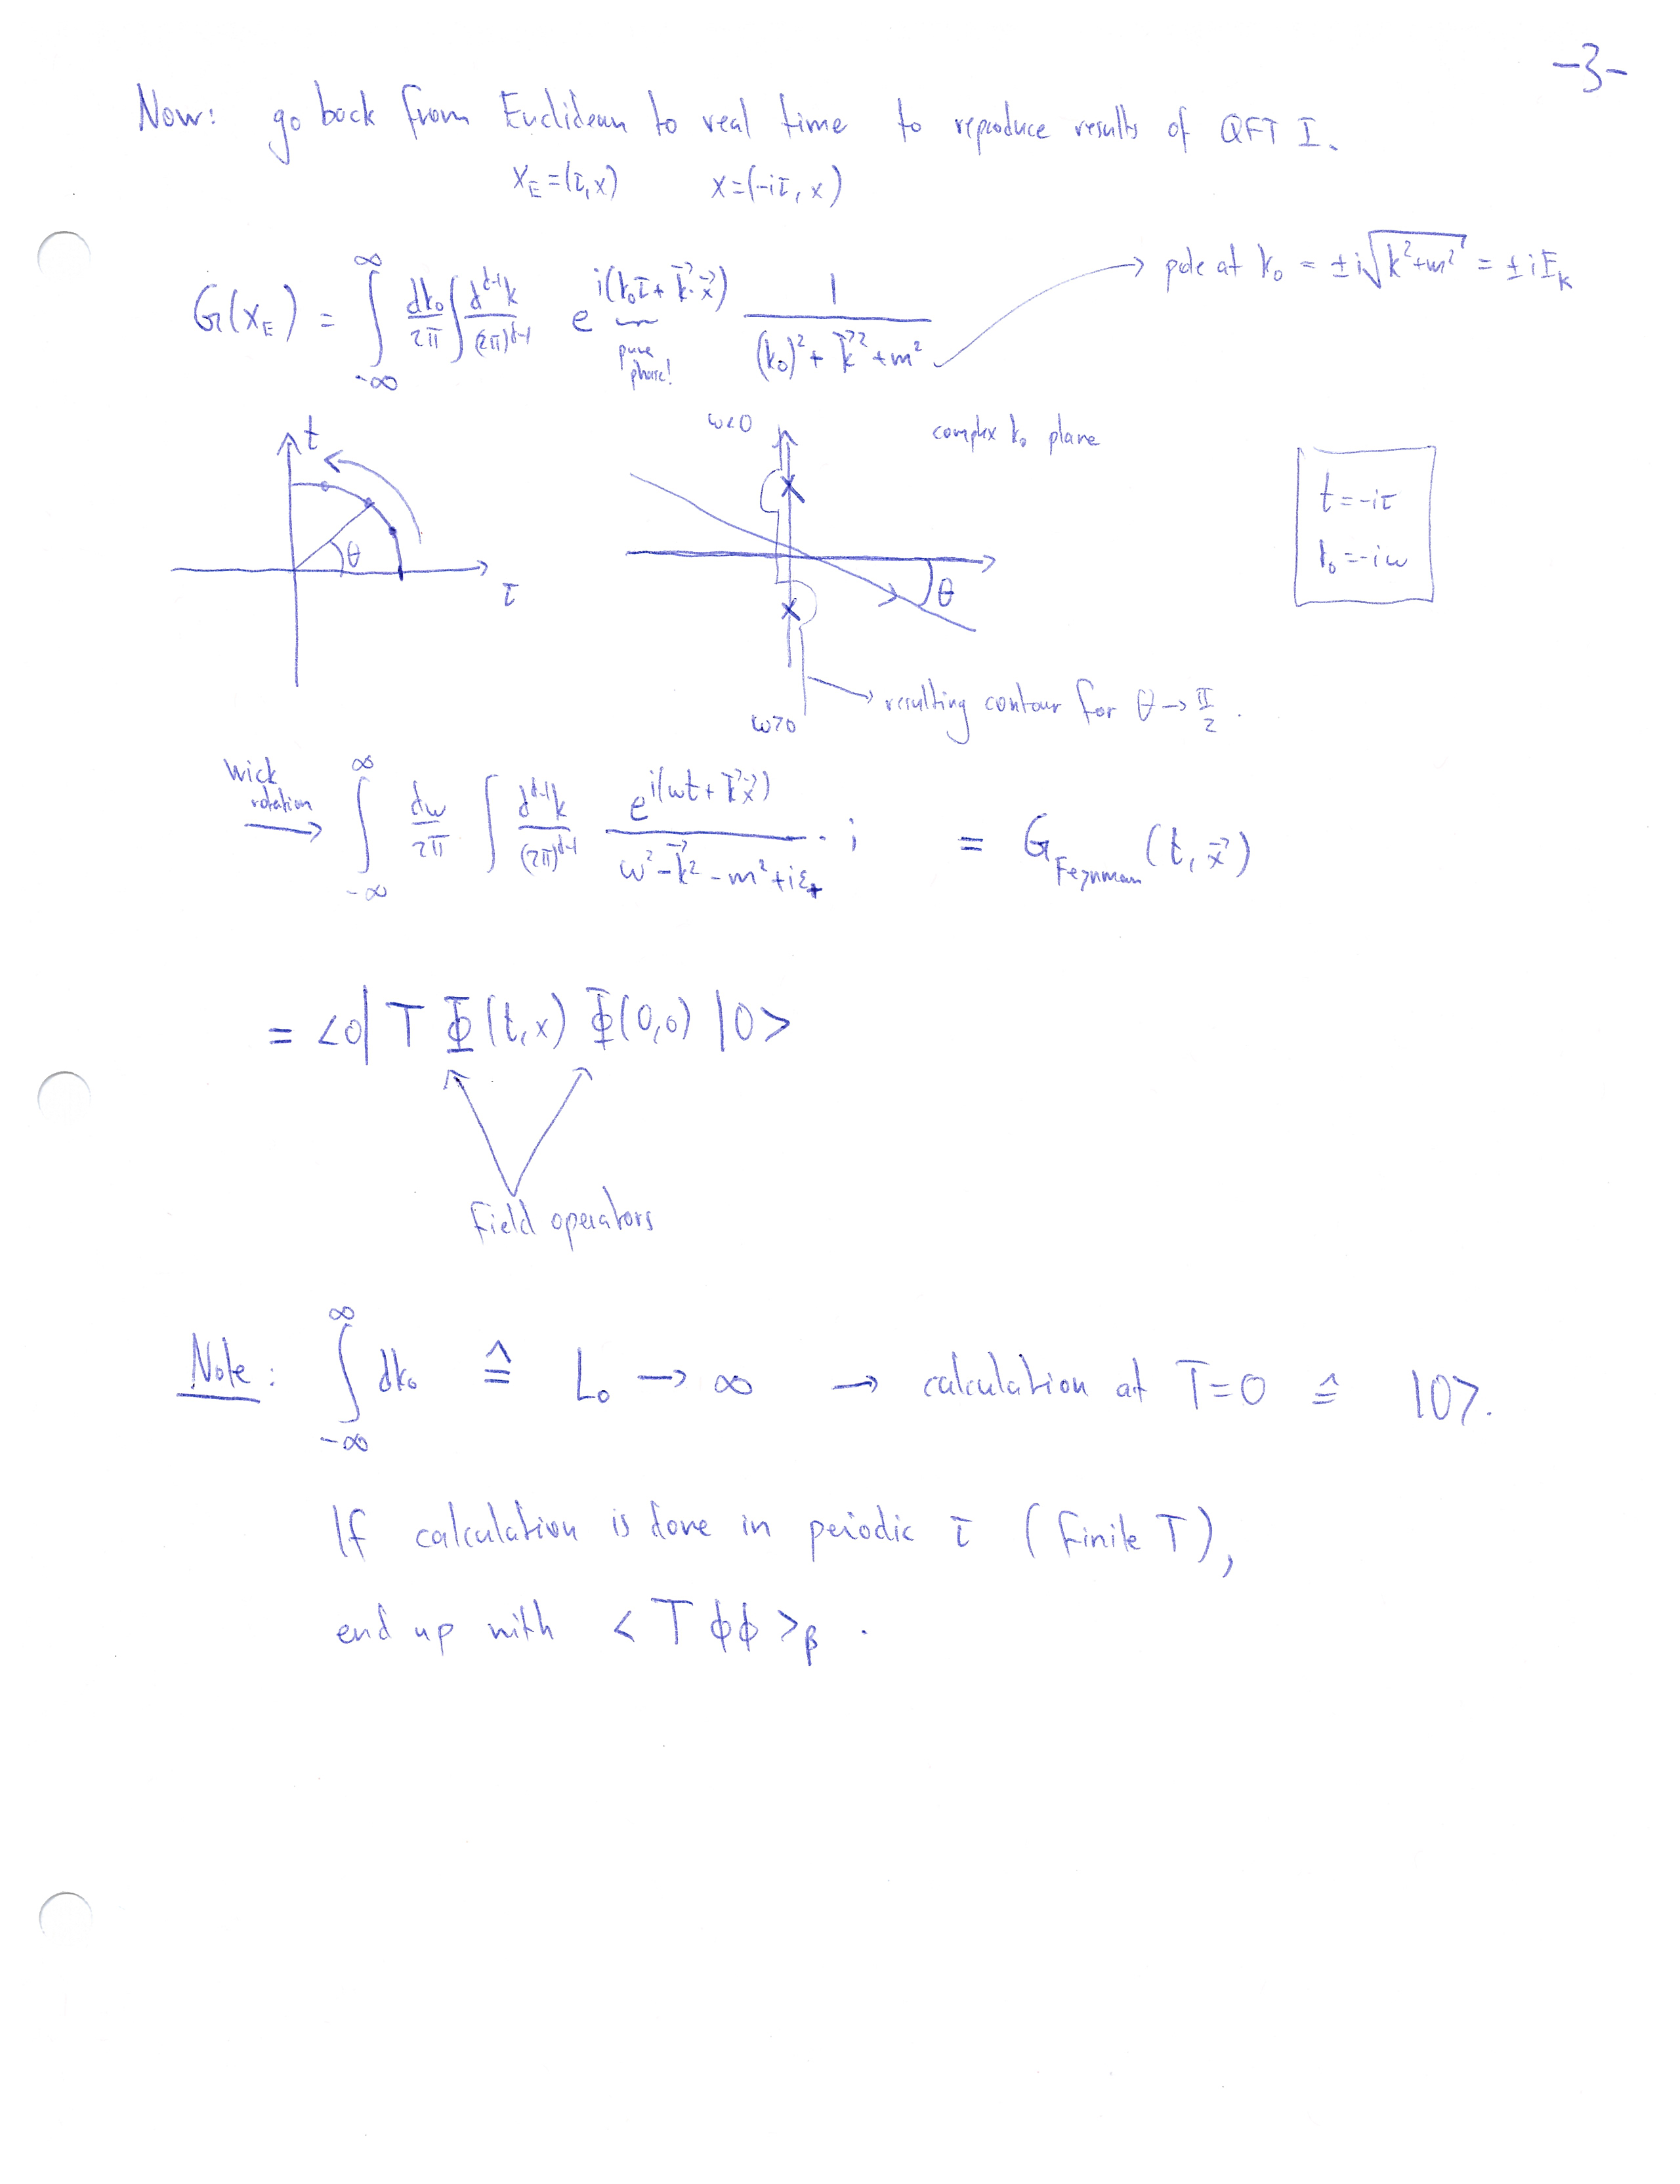 -3-
Now: go back from Euclidean to real time to reproduce results of QFT I.
x_E = (τ, x) x = (-iτ, x)
G(x_E) = ∫_{-∞}^{∞} dk₀/2π ∫ d^{d-1}k/(2π)^{d-1} e^{i(k₀τ + k⃗·x⃗)} 1/((k₀)² + k⃗² + m²) → pole at k₀ = ±i√(k²+m²) = ±iE_k
pure phase!
t
θ
τ
ω<0
complex k₀ plane
θ
ω>0
t = -iτ
k₀ = -iω
→ resulting contour for θ → π/2.
Wick rotation → ∫_{-∞}^{∞} dω/2π ∫ d^{d-1}k/(2π)^{d-1} e^{i(ωt + k⃗x⃗)}/(ω² - k⃗² - m² + iε₊) · i = G_{Feynman}(t, x⃗)
= <0| T Φ(t,x) Φ(0,0) |0>
field operators
Note: ∫_{-∞}^{∞} dk₀ ≙ L₀ → ∞ → calculation at T=0 ≙ |0>.
If calculation is done in peiodic τ (finite T),
end up with <T ϕϕ>_β .